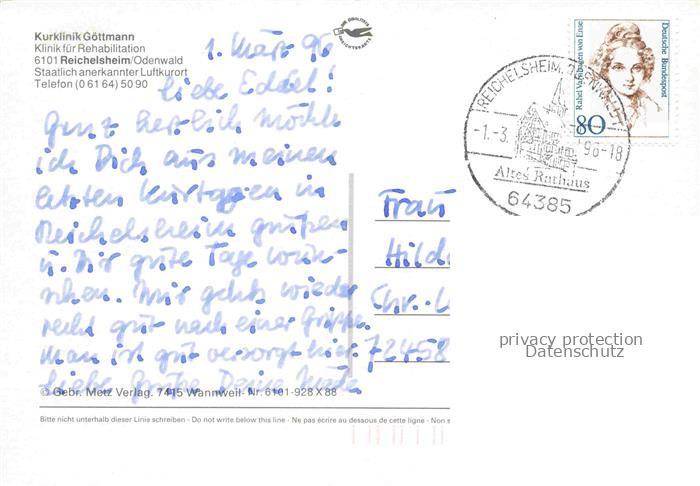 Kurklinik Göttmann
Klinik für Rehabilitation
6101 Reichelsheim/Odenwald
Staatlich anerkannter Luftkurort
Telefon (0 61 64) 50 90
1. März 96
Liebe
Ganz herzlich möchte
ich Dich aus meinen
letzten Kurtagen in
Reichelsheim grüßen
u. Dir gute Tage wün-
schen. Mir geht's wieder
recht gut nach einer Grippe.
Man ist gut versorgt hier.
Liebe Grüße Deine
© Gebr. Metz Verlag. 7415 Wannweil · Nr. 6101-928 X 88
Bitte nicht unterhalb dieser Linie schreiben - Do not write below this line - Ne pas écrire au dessous de cette ligne - Non s
REICHELSHEIM, ODENWALD 1
-1.-3. 96-18
Altes Rathaus
64385
Rahel Varnhagen von Ense
Deutsche Bundespost
80
Frau
Hild
Chr.-
72458
privacy protection
Datenschutz